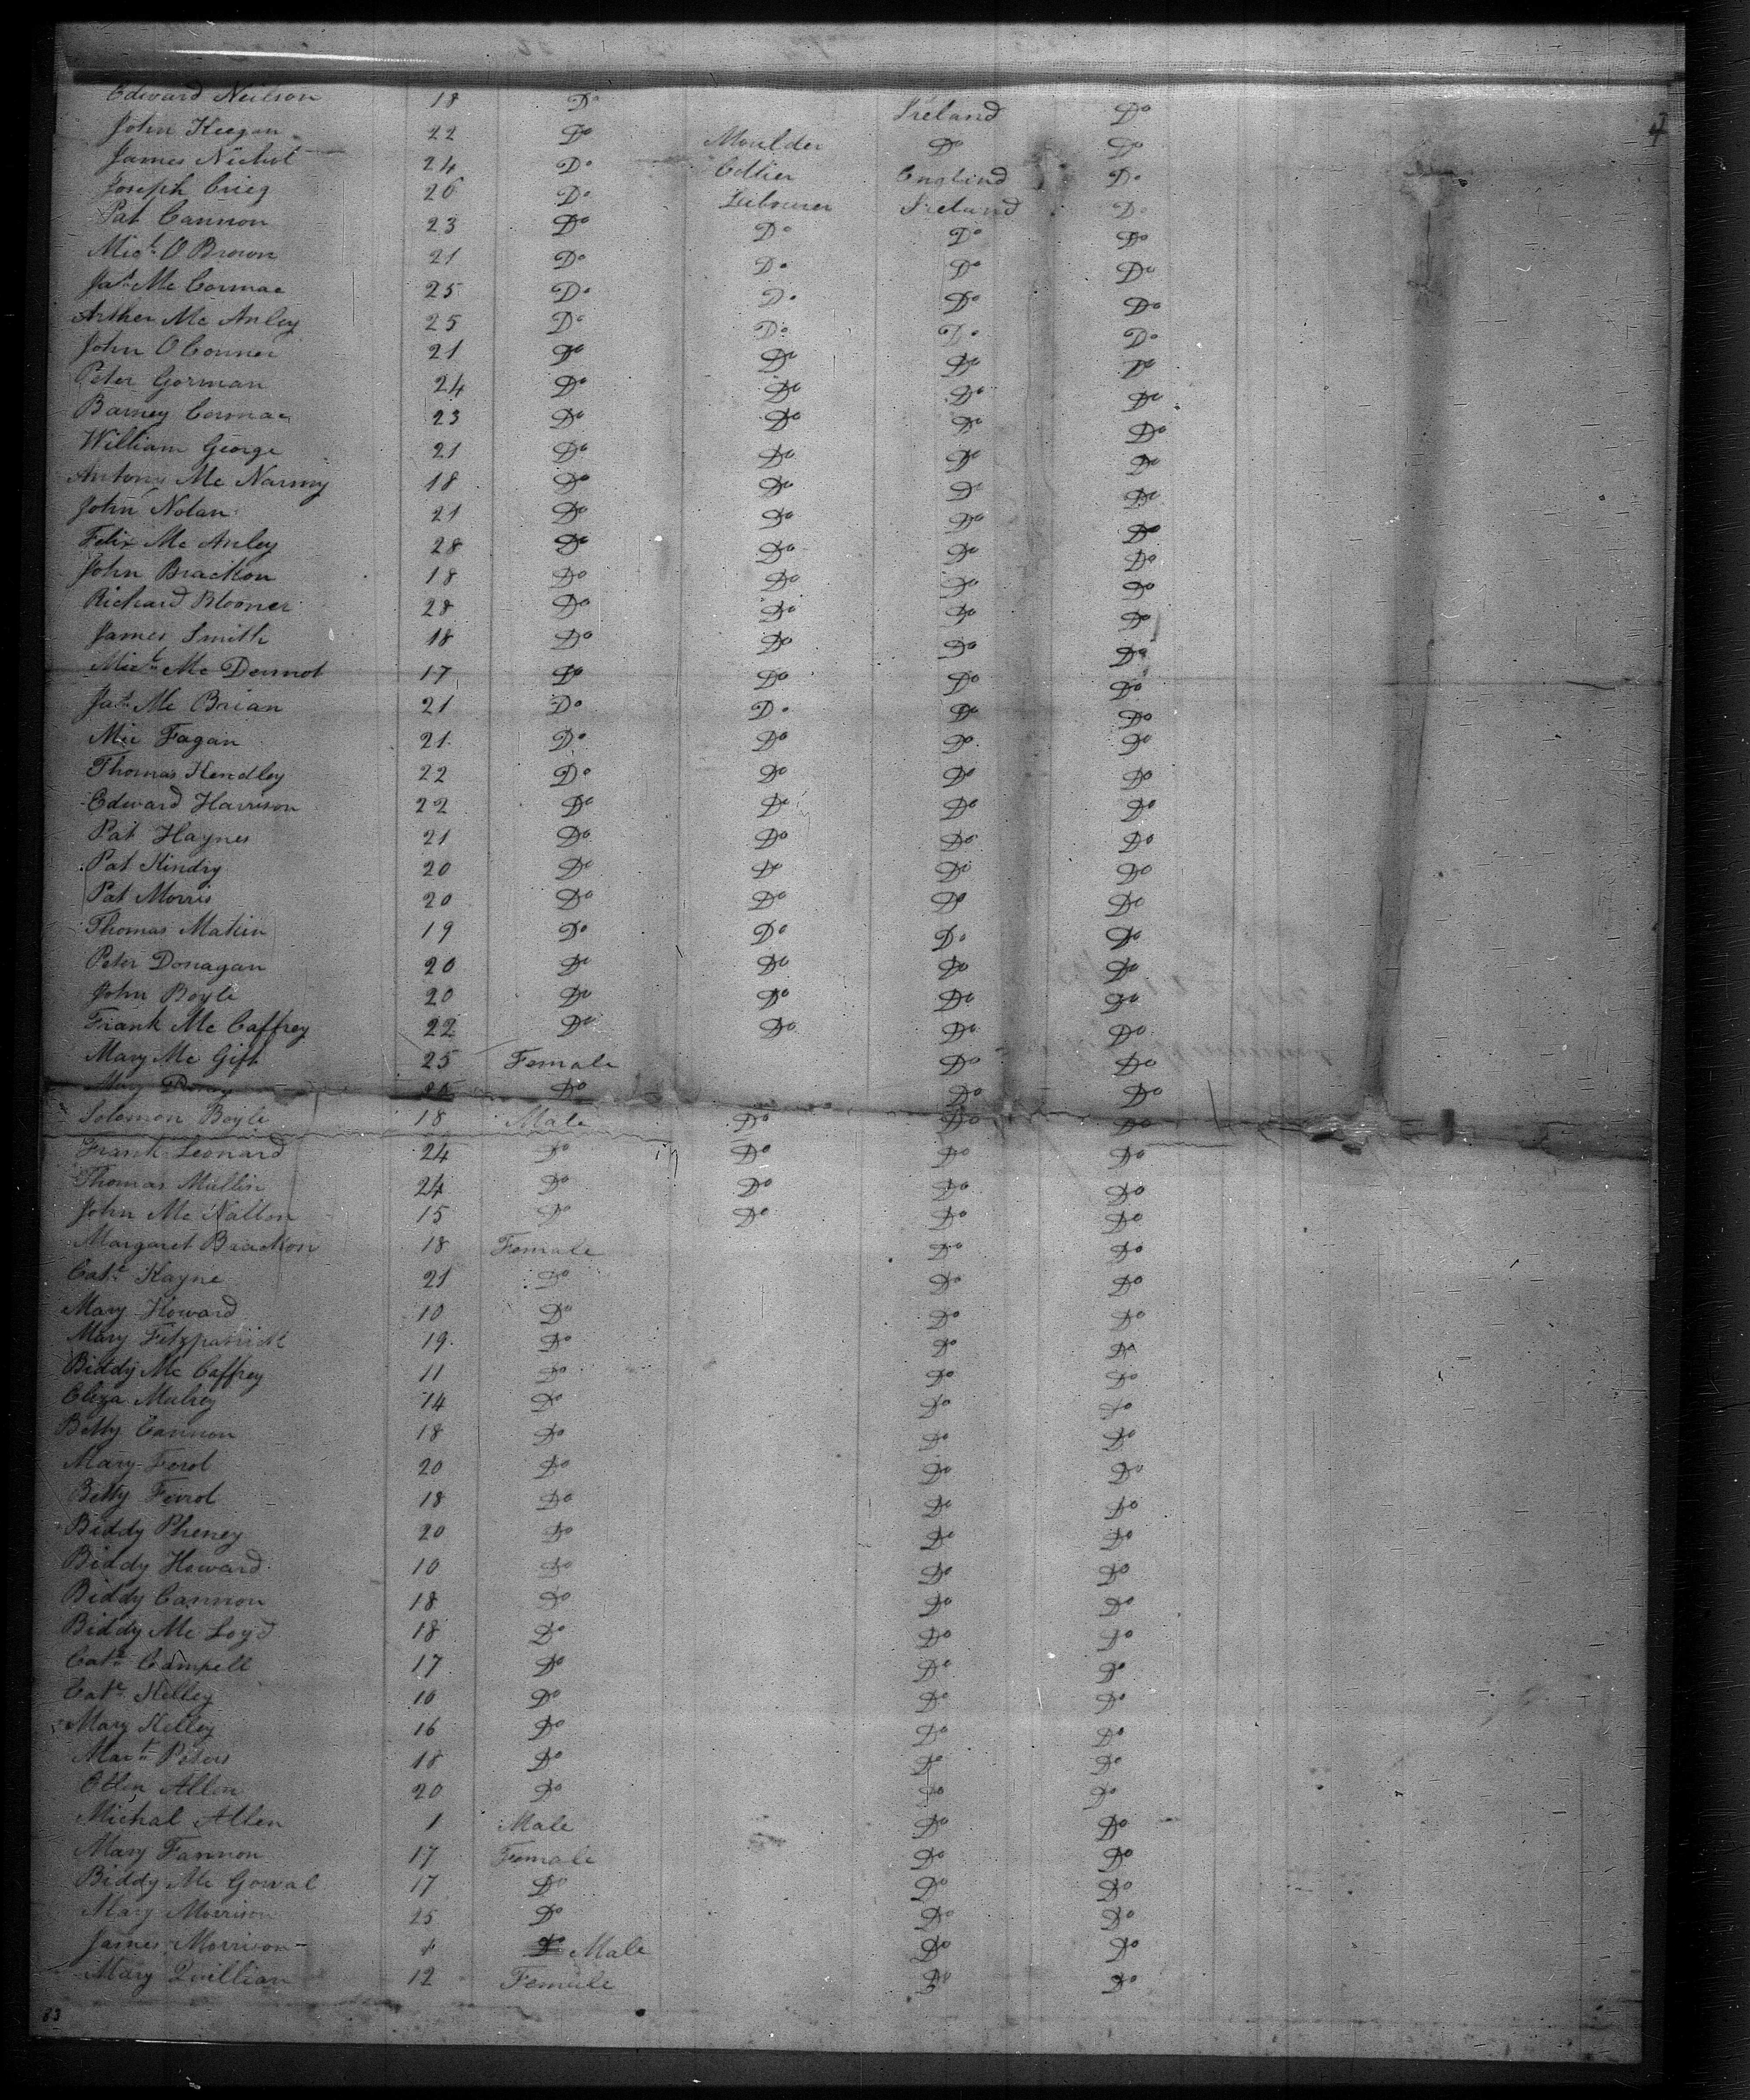 Edward Neilson 18 Do Ireland Do
John Keegan 22 Do Moulder Do Do
James Nichol 24 Do Collier England Do
Joseph Crieg 26 Do Labourer Ireland Do
Pat Cannon 23 Do Do Do Do
Micl. O Brown 21 Do Do Do Do
Jas. Mc Cormac 25 Do Do Do Do
Arther Mc Anley 25 Do Do Do Do
John O Conner 21 Do Do Do Do
Peter Gorman 24 Do Do Do Do
Barney Cormac 23 Do Do Do Do
William George 21 Do Do Do Do
Antony Mc Narmy 18 Do Do Do Do
John Nolan 21 Do Do Do Do
Felix Mc Anley 28 Do Do Do Do
John Brackon 18 Do Do Do Do
Richard Bloomer 28 Do Do Do Do
James Smith 18 Do Do Do Do
Micl. Mc Dermot 17 Do Do Do Do
Jas. Mc Brian 21 Do Do Do Do
Mic Fagan 21 Do Do Do Do
Thomas Hendley 22 Do Do Do Do
Edward Harrison 22 Do Do Do Do
Pat Haynes 21 Do Do Do Do
Pat Kindry 20 Do Do Do Do
Pat Morris 20 Do Do Do Do
Thomas Makin 19 Do Do Do Do
Peter Donagan 20 Do Do Do Do
John Boyle 20 Do Do Do Do
Frank Mc Caffrey 22 Do Do Do Do
Mary Mc Gift 25 Female Do Do
Mary Do Do Do
Solomon Boyle 18 Male Do Do Do
Frank Leonard 24 Do Do Do Do
Thomas Mullin 24 Do Do Do Do
John Mc Nallon 15 Do Do Do Do
Margaret Brackon 18 Female Do Do
Cate. Kayne 21 Do Do Do
Mary Howard 10 Do Do Do
Mary Fitzpatrick 19 Do Do Do
Biddy Mc Caffrey 11 Do Do Do
Eliza Mulrey 14 Do Do Do
Betty Cannon 18 Do Do Do
Mary Ferol 20 Do Do Do
Betty Ferrol 18 Do Do Do
Biddy Pheney 20 Do Do Do
Biddy Howard 10 Do Do Do
Biddy Cannon 18 Do Do Do
Biddy Mc Loyd 18 Do Do Do
Cate. Campell 17 Do Do Do
Cate. Kelley 10 Do Do Do
Mary Kelley 16 Do Do Do
Mart. Peters 18 Do Do Do
Ellen Allen 20 Do Do Do
Michal Allen 1 Male Do Do
Mary Fannon 17 Female Do Do
Biddy Mc Gowal 17 Do Do Do
Mary Morrison 25 Do Do Do
James Morrison Male Do Do
Mary Quillian 12 Female Do Do
83